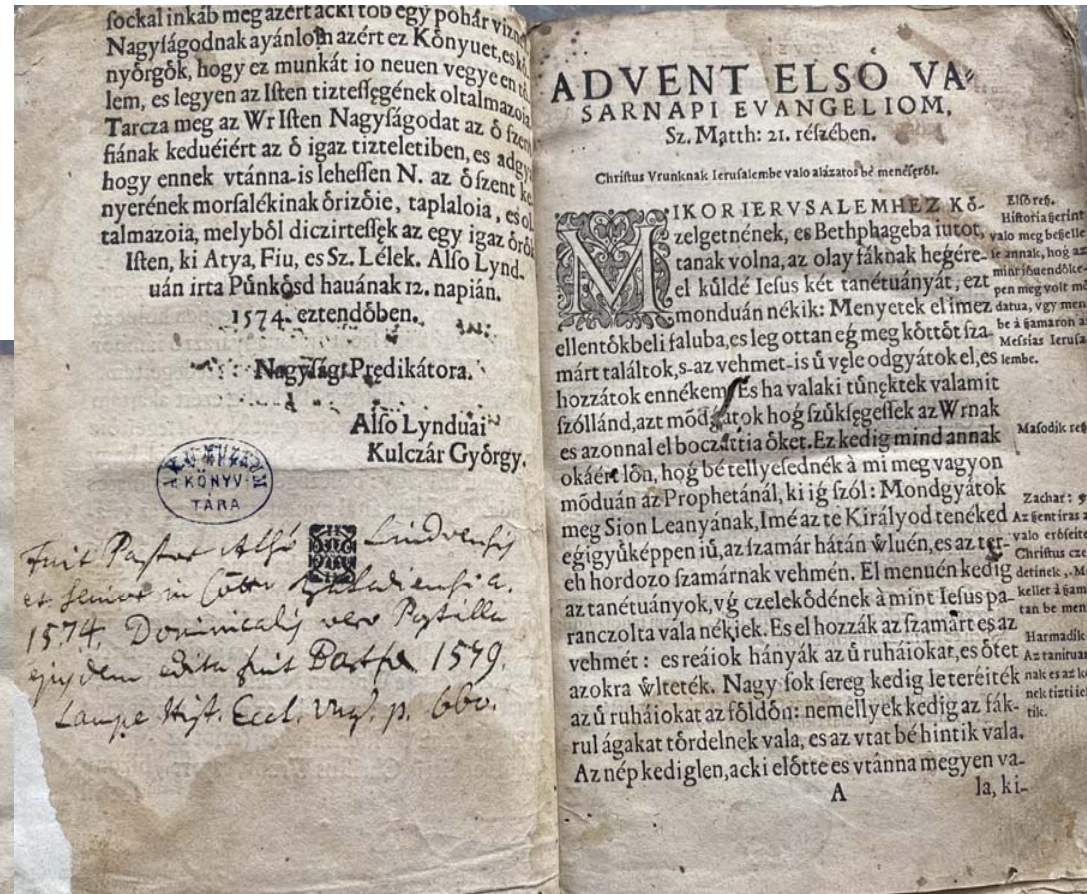 ſockal inkáb meg azért acki tòb egy pohár vizn
Nagyſágodnak ayánlom azért ez Kònyuet, es
nyòrgòk, hogy ez munkát io neuen vegye en
lem, es legyen az Iſten tizteſſęgének oltalmazoia
Tarcza meg az Wr Iſten Nagyſágodat az ò ſzen
fiának keduéiért az ò igaz tizteletiben, es adgy
hogy ennek vtánna-is leheſſen N. az ò ſzent ke
nyerének morſalékinak òrizòie, taplaloia, es ol
talmazoia, melyből diczirteſſęk az egy igaz òrò
Iſten, ki Atya, Fiu, es Sz. Lélek. Alſo Lynd-
uán irta Pùnkòsd hauának 12. napián.
1574. eztendòben.
Nagyſági Prędikátora.
Alſo Lynduai
Kulczár Gyòrgy.
KÖNYV
TÁRA
Fuit Pastor Alsó Lindvensis
et Senior in
1574. Dominicalis vero Postilla
ejusdem edita fuit 1579.
Lampe Hist. Eccl. p. 660.
ADVENT ELSÒ VA-
SARNAPI EVANGELIOM,
Sz. Matth: 21. réſzében.
Chriſtus Vrunknak Ieruſalembe valo alázatos bé meneſęról.
MIKOR IERVSALEMHEZ Kò-
zelgetnének, es Bethphageba iutot,
tanak volna, az olay fáknak hegére-
el kùldé Ieſus két tanétuányát, ezt
monduán nékik: Menyetek el imez
ellentòkbeli faluba, es leg ottan eǵ meg kòttòt ſza-
márt találtok, s-az vehmet-is ù vęle odgyátok el, es
hozzátok ennékem. Es ha valaki tùnęktek valamit
ſzóllánd, azt mòdgátok hoǵ ſzùkſęgeſſek az Wrnak
es azonnal el boczáttia òket. Ez kedig mind annak
okáért lòn, hoǵ bé tellyeſednék à mi meg vagyon
mòduán az Prophetánál, ki iǵ ſzól: Mondgyátok
meg Sion Leanyának, Imé az te Királyod tenéked
eǵigyùképpen iù, az ſzamár hátán ẁluén, es az ter-
eh hordozo ſzamárnak vehmén. El menuén kedig
az tanétuányok, vǵ czelekòdének à mint Ieſus pa-
ranczolta vala nékiek. Es el hozzák az ſzamárt es az
vehmét: es reáiok hányák az ù ruháiokat, es òtet
azokra ẁlteték. Nagy ſok ſereg kedig le teréiték
az ù ruháiokat az fòldòn: nemellyek kedig az fák-
rul ágakat tòrdelnek vala, es az vtat bé hintik vala.
Az nép kediglen, acki elòtte es vtánna megyen va-
A
la, ki-
Elſò reß.
Hiſtoria ßerint
valo meg beßelle
ſe annak, hoǵ az
pen meg volt
datua, vgy men
be à ßamaron à
Meſsias Ieruſa
lembe.
Maſodik reß
Zachar: 9
Az ßentiras
valo eròſeite
Chriſtus
detinek,
kellet à ßam
tan be men
Harmadik
Az tanituan
nak es az
nek tizti
tik.